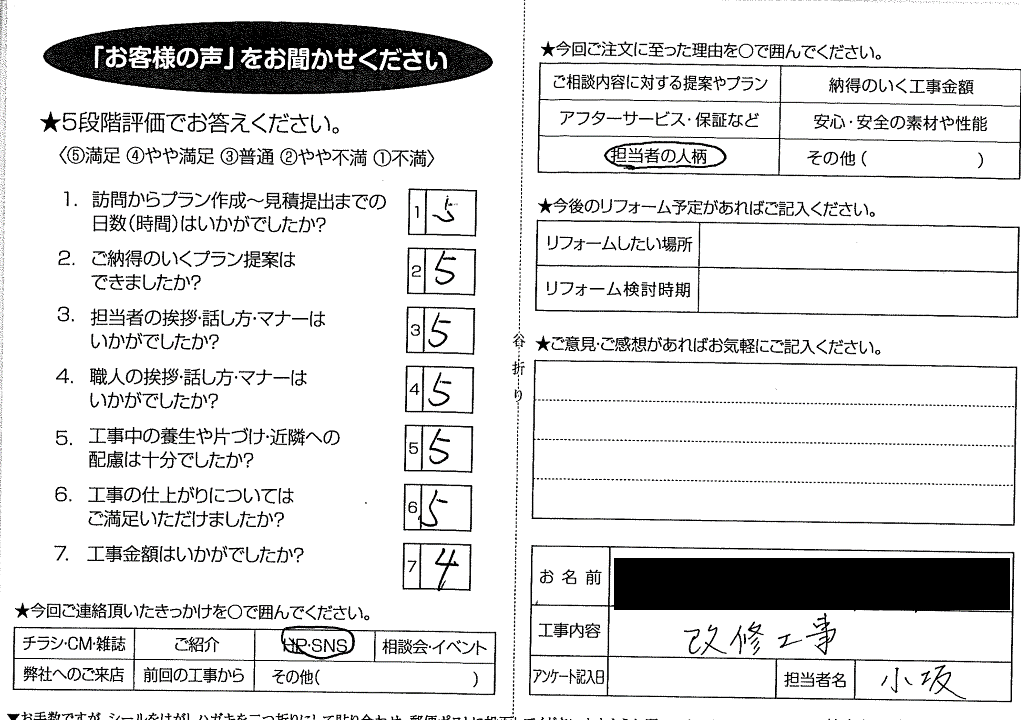 「お客様の声」をお聞かせください
★5段階評価でお答えください。
〈⑤満足 ④やや満足 ③普通 ②やや不満 ①不満〉
1. 訪問からプラン作成～見積提出までの
日数(時間)はいかがでしたか?
1 5
2. ご納得のいくプラン提案は
できましたか?
2 5
3. 担当者の挨拶・話し方・マナーは
いかがでしたか?
3 5
4. 職人の挨拶・話し方・マナーは
いかがでしたか?
4 5
5. 工事中の養生や片づけ・近隣への
配慮は十分でしたか?
5 5
6. 工事の仕上がりについては
ご満足いただけましたか?
6 5
7. 工事金額はいかがでしたか?
7 4
★今回ご連絡頂いたきっかけを〇で囲んでください。
チラシ・CM・雑誌 ご紹介 HP・SNS 相談会・イベント
弊社へのご来店 前回の工事から その他( )
谷折り
★今回ご注文に至った理由を〇で囲んでください。
ご相談内容に対する提案やプラン 納得のいく工事金額
アフターサービス・保証など 安心・安全の素材や性能
担当者の人柄 その他( )
★今後のリフォーム予定があればご記入ください。
リフォームしたい場所
リフォーム検討時期
★ご意見・ご感想があればお気軽にご記入ください。
お名前
工事内容 改修工事
アンケート記入日 担当者名 小坂